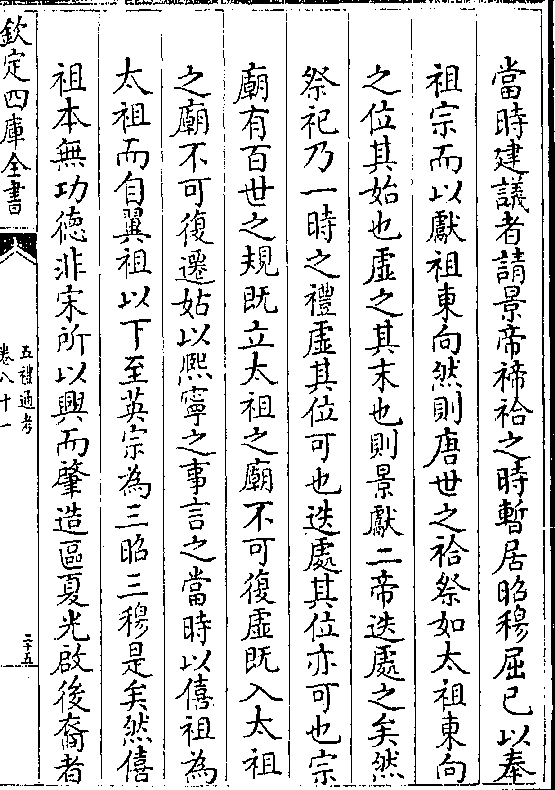 當時建議者請景帝禘祫之時暫居昭穆屈已以奉
祖宗而以獻祖東向然則唐世之祫祭如太祖東向
之位其始也虛之其末也則景獻二帝迭處之矣然
祭祀乃一時之禮虛其位可也迭處其位亦可也宗
廟有百世之規既立太祖之廟不可復虛既入太祖
之廟不可復遷姑以熈寧之事言之當時以僖祖為
太祖而自翼祖以下至英宗為三昭三穆是矣然僖
祖本無功德非宋所以興而肇造區夏光啟後裔者
欽定四庫全書
五禮通考
卷八十一
三十五